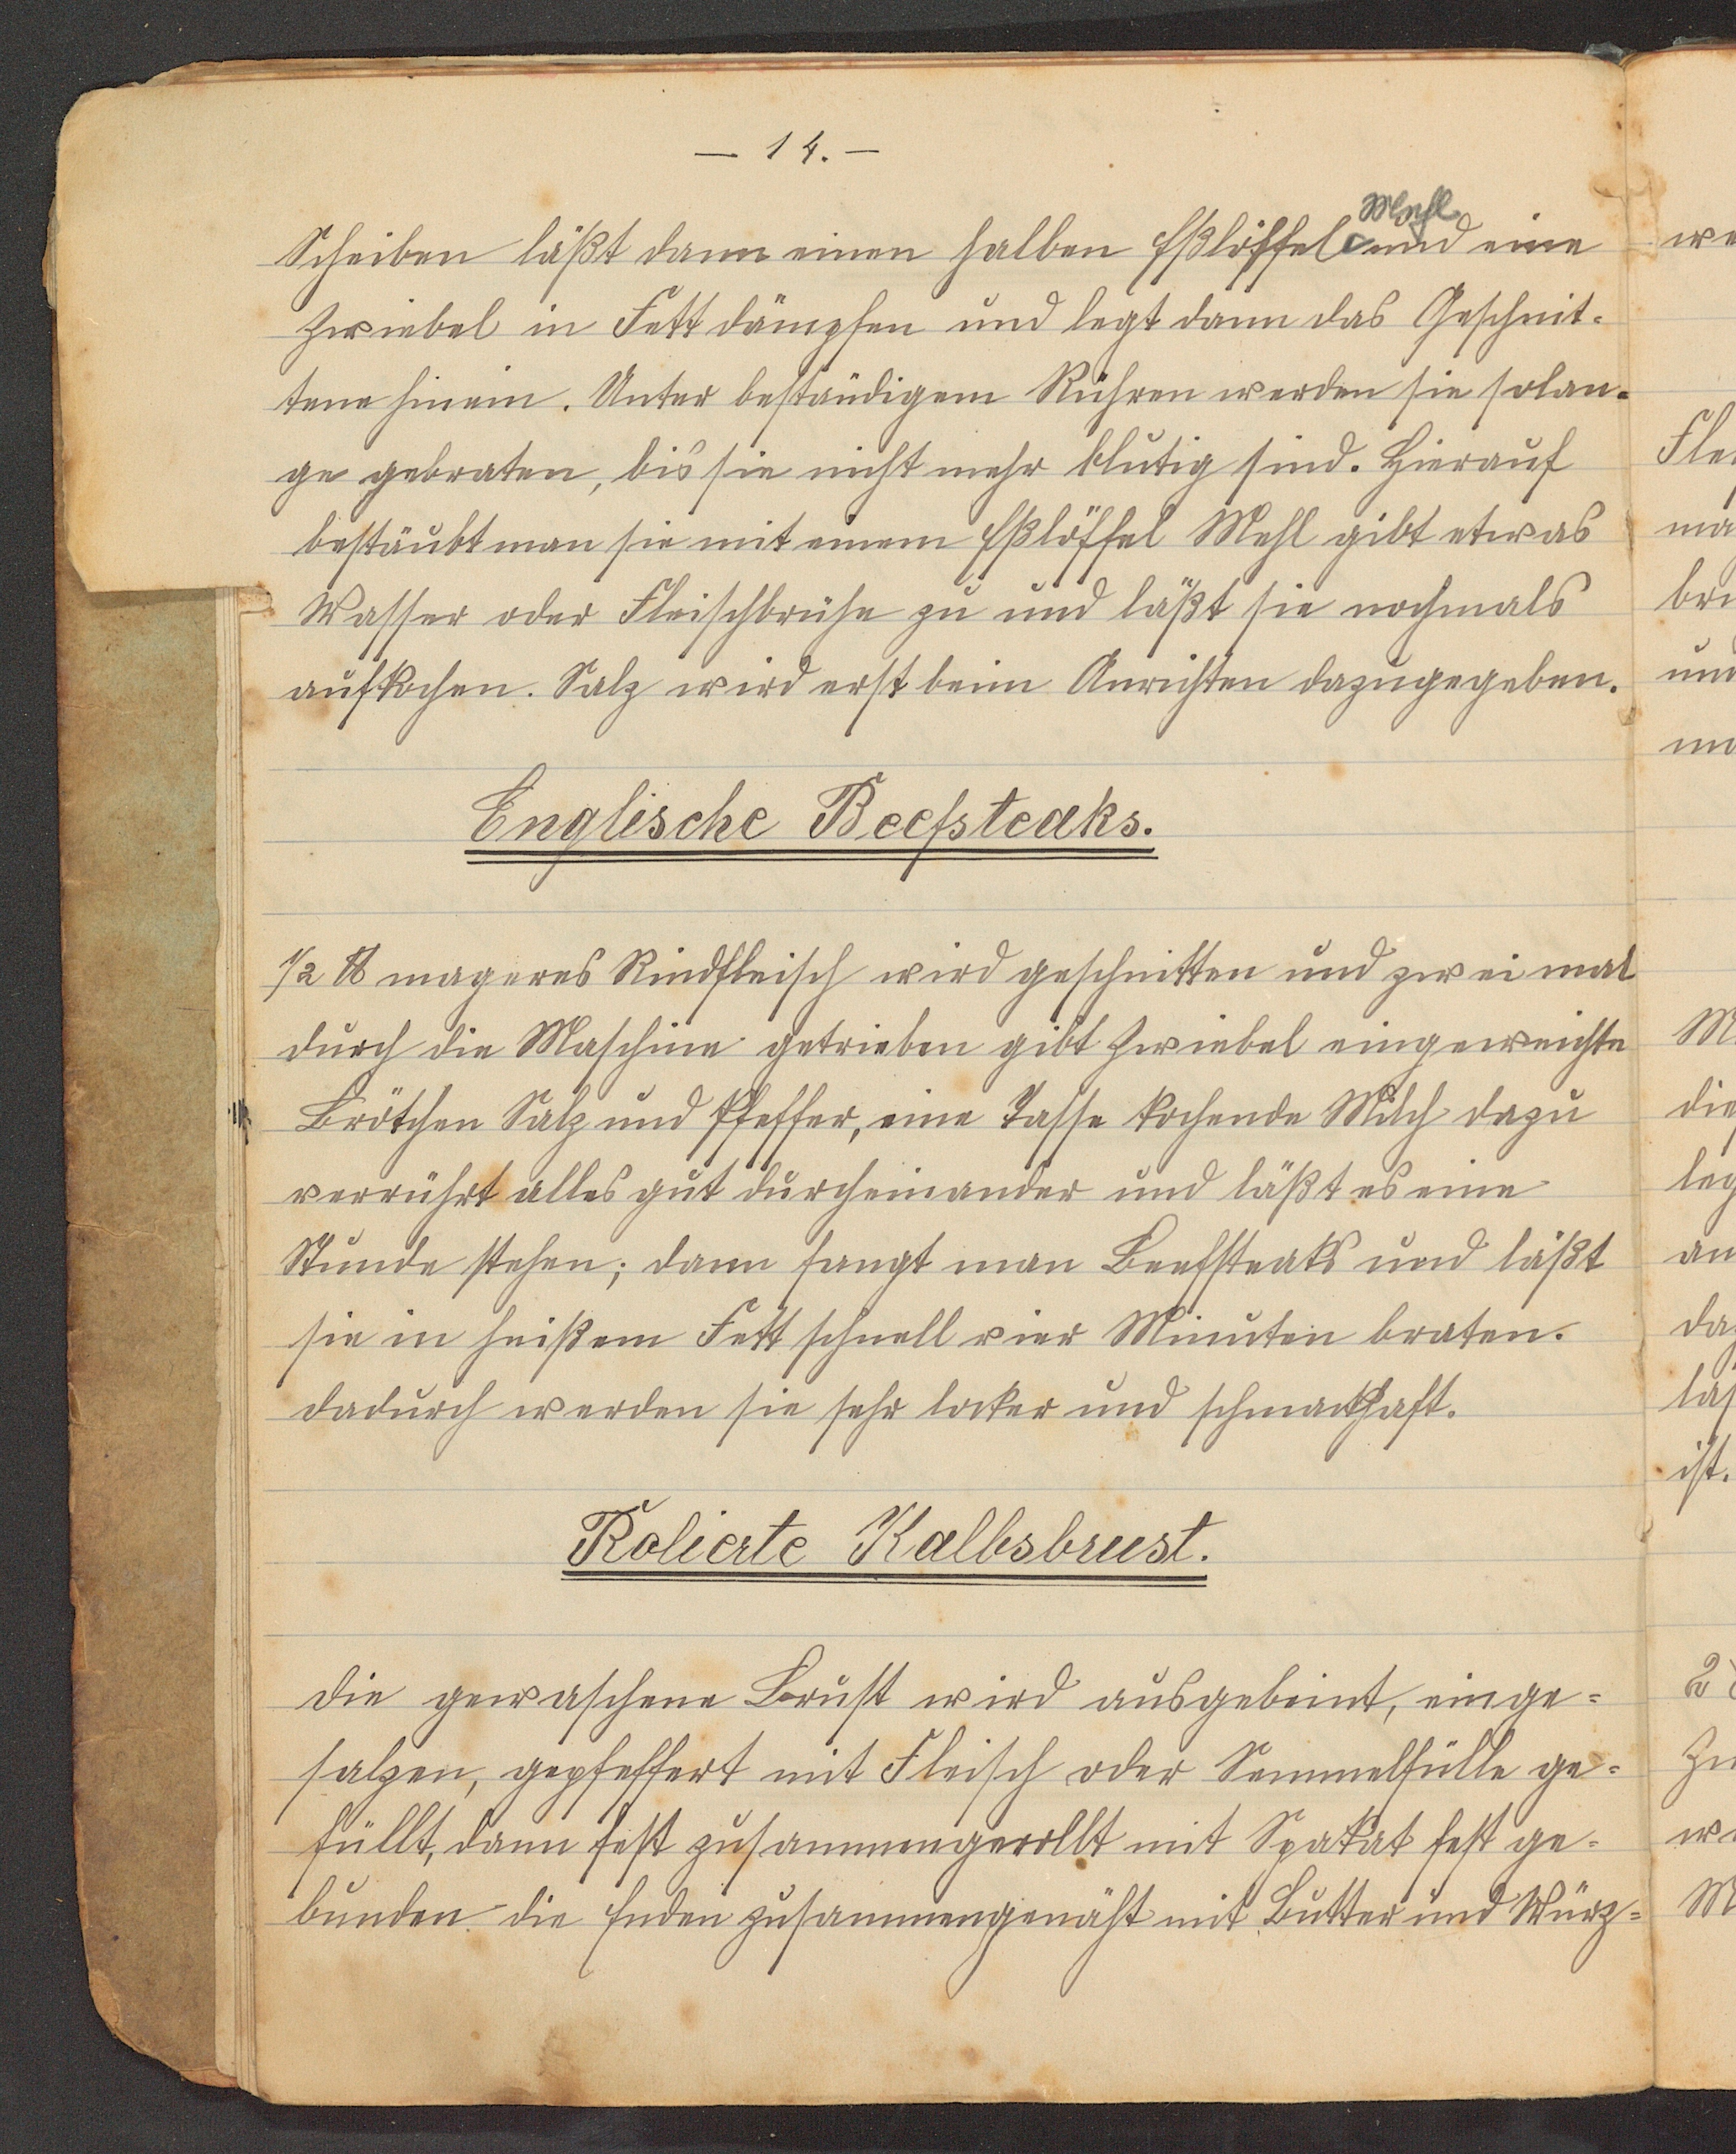 — 14. —
Scheiben läßt dann einen halben Eßlöffel Mehl und eine
Zwiebel in Fett dämpfen und legt dann das Geschnit-
tene hinein. Unter beständigem Rühren werden sie solan-
ge gebraten, bis sie nicht mehr blutig sind. Hierauf
bestäubt man sie mit einem Eßlöffel Mehl gibt etwas
Wasser oder Fleischbrühe zu und läßt sie nochmals
aufkochen. Salz wird erst beim Anrichten dazugegeben.
Englische Beefsteaks.
1/2 ℔ mageres Rindfleisch wird geschnitten und zwei mal
durch die Maschine getrieben gibt Zwiebel eingeweichte
Brötchen Salz und Pfeffer, eine Tasse kochende Milch dazu
verrührt alles gut durcheinander und läßt es eine
Stunde stehen; dann fangt man Beefsteaks und läßt
sie in heißem Fett schnell vier Minuten braten.
dadurch werden sie sehr locker und schmackhaft.
Rolierte Kalbsbrust.
die gewaschene Brust wird ausgebeint, einge=
salzen, gepfeffert mit Fleisch oder Semmelfülle ge=
füllt, dann fest zusammengerollt mit Spakat fest ge-
bunden die Enden zusammengenäht mit Butter und Würz=